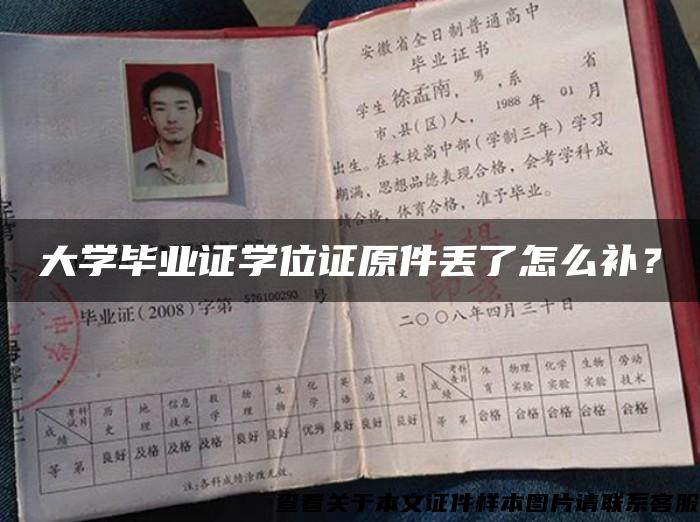 安徽省全日制普通高中
毕业证书
学生徐孟南，男，系 省
市、县(区)人，1988年01月
出生。在本校高中部（学制三年）学习
期满，思想品德表现合格，会考学科成
绩合格，体育合格，准予毕业。
大学毕业证学位证原件丢了怎么补？
毕业证(2008)字第576100293号
二〇〇八年四月三十日
成绩 考试科目 历史 地理 信息技术 数学 物理 生物 化学 英语 政治 语文
等第 良好 及格 及格 及格 良好 良好 优秀 良好 良好 良好
注:各科成绩涂改无效。
成绩 考查科目 体育 物理实验 化学实验 生物实验 劳动技术
等第 合格 合格 合格 合格 合格
查看关于本文证件样本图片请联系客服